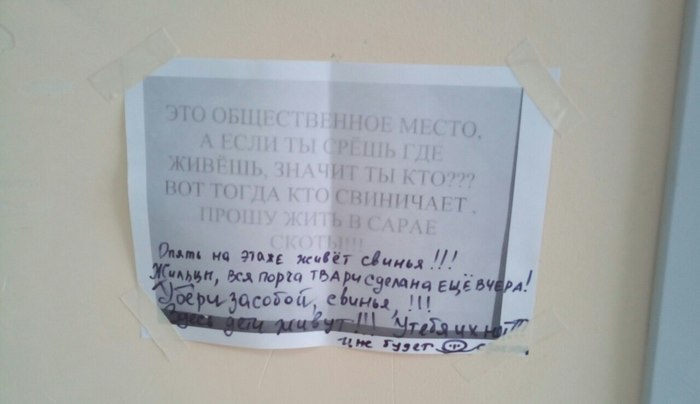 ЭТО ОБЩЕСТВЕННОЕ МЕСТО,
А ЕСЛИ ТЫ СРЁШЬ ГДЕ
ЖИВЁШЬ, ЗНАЧИТ ТЫ КТО???
ВОТ ТОГДА КТО СВИНИЧАЕТ ,
ПРОШУ ЖИТЬ В САРАЕ
СКОТЫ!!!
Опять на этаже живёт свинья!!!
Жильцы, вся порча ТВАРИ сделана ЕЩЁ ВЧЕРА!
Убери засобой, свинья, !!!
Здесь дети живут!!! У тебя их нет
и не будет